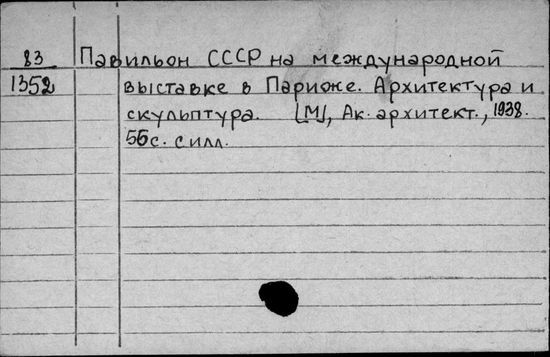 83 Павильон СССР на международной
1352 выставке в Париже. Архитектура и
скульптура. [М], Ак. архитект., 1938.
56с. с илл.